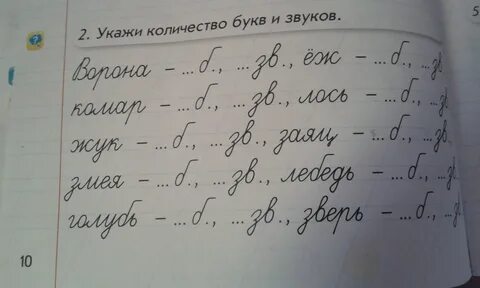 2. Укажи количество букв и звуков.
5
Ворона – ... б., ... зв., ёж – ... б., ... зв
комар – ... б., ... зв., лось – ... б., ... зв
жук – ... б., ... зв., заяц – ... б., ... зв.
змея – ... б., ... зв., лебедь – ... б., ... зв
голубь – ... б., ... зв., зверь – ... б., ... зв
10